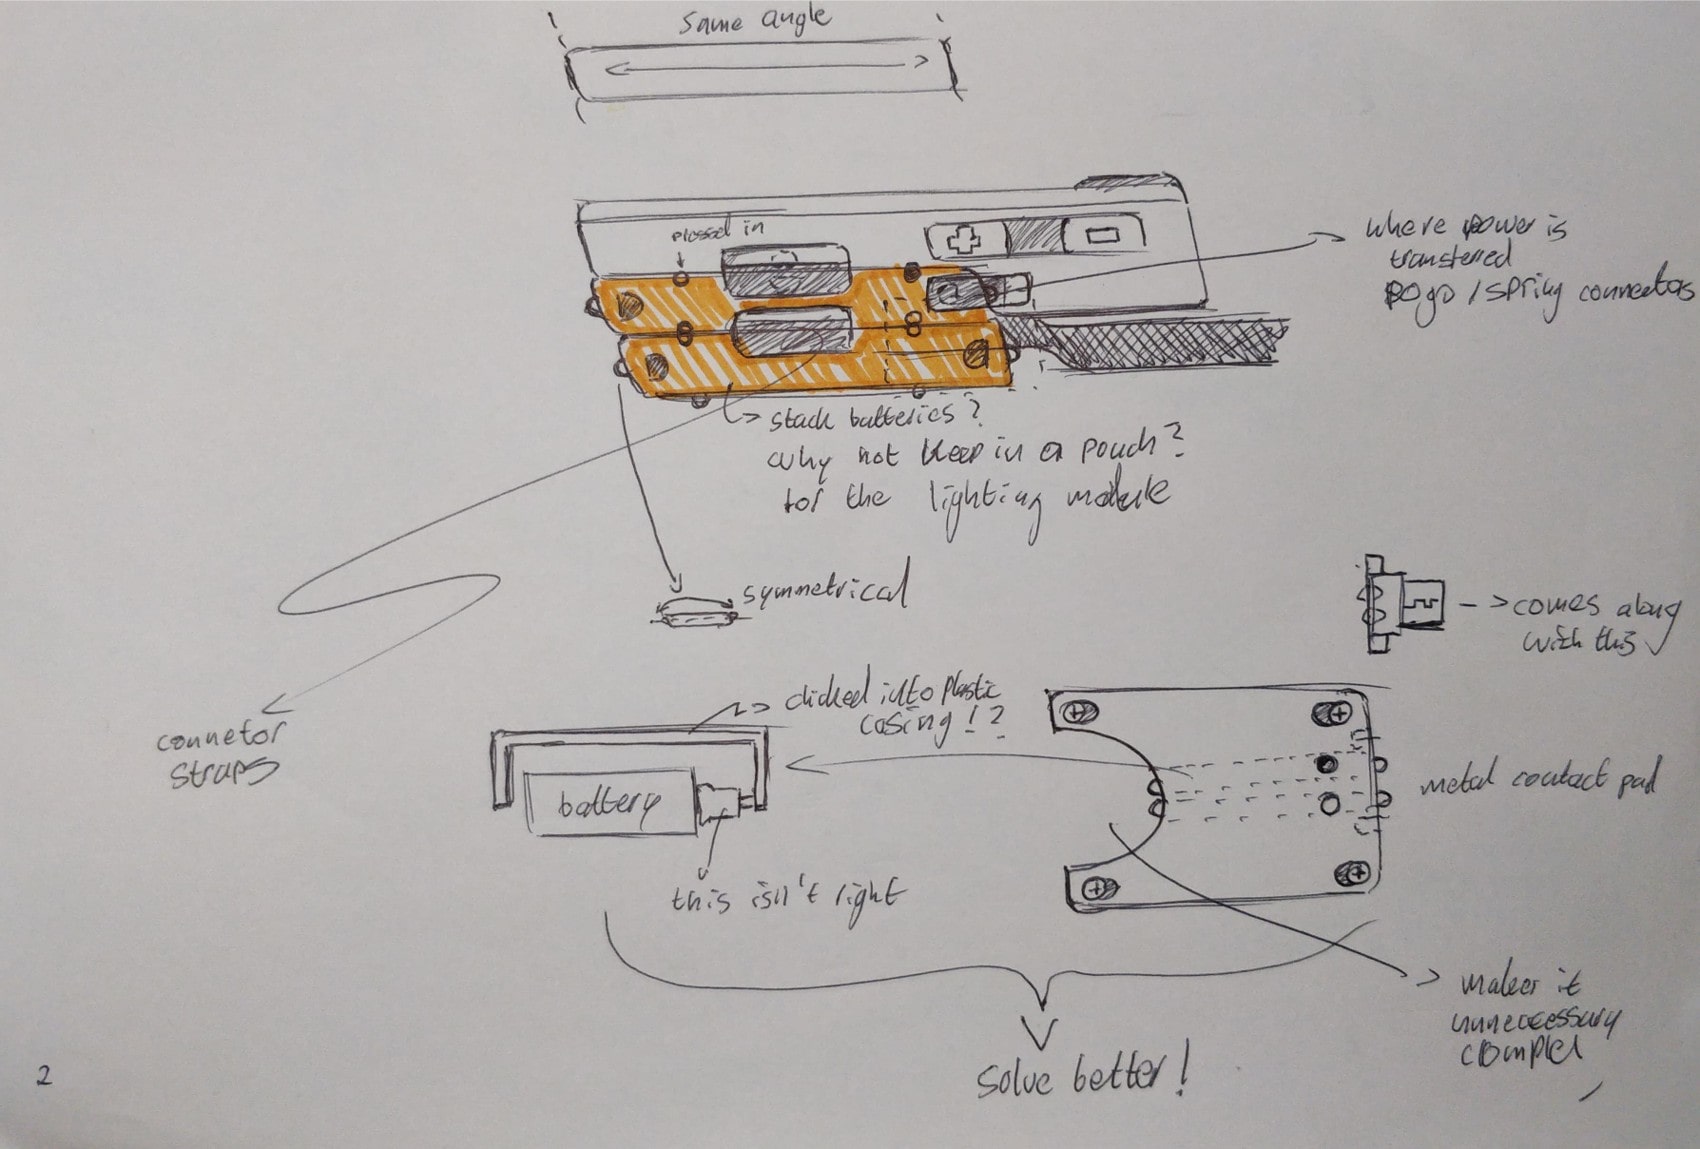 Same angle
pressed in
where power is
transferred
pogo / spring connectors
stack batteries?
why not keep in a pouch?
for the lighting module
symmetrical
-> comes along
with this
clicked into plastic
casing!?
connetor
straps
battery
metal contact pad
this isn't right
makes it
unnecessary
complex
solve better!
2